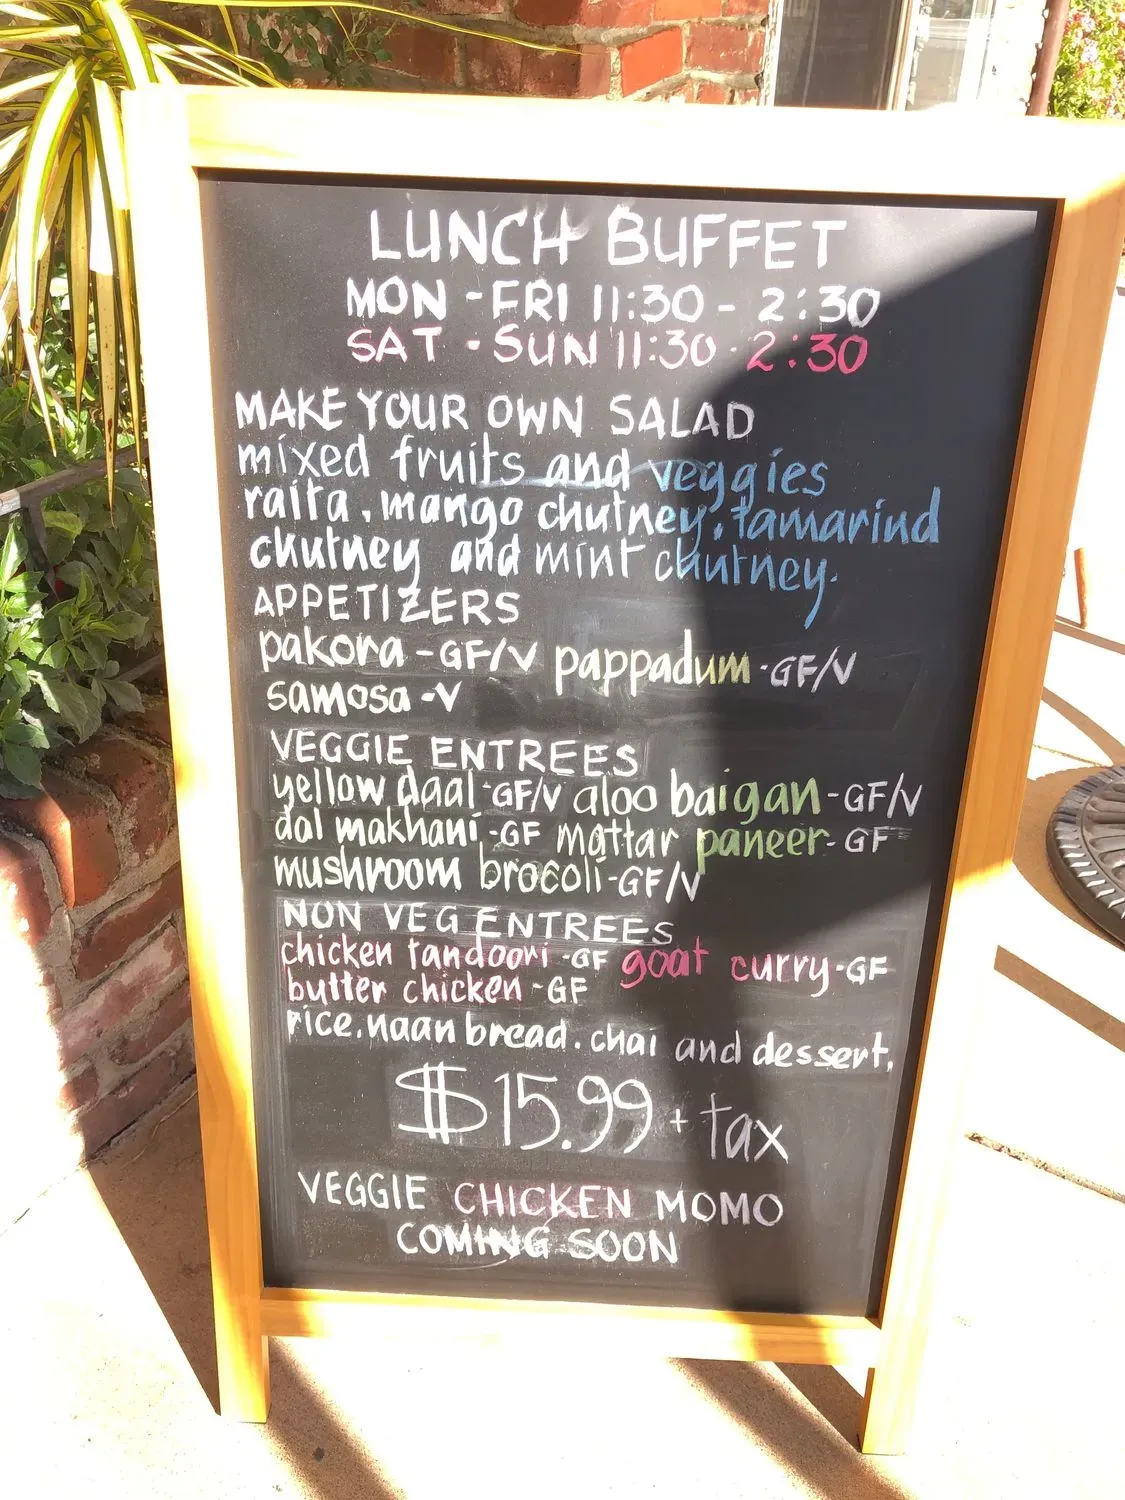 LUNCH BUFFET
MON - FRI 11:30 - 2:30
SAT - SUN 11:30 - 2:30
MAKE YOUR OWN SALAD
mixed fruits and veggies
raita, mango chutney, tamarind
chutney and mint chutney.
APPETIZERS
pakora - GF/V pappadum - GF/V
samosa - V
VEGGIE ENTREES
yellow daal - GF/V aloo baigan - GF/V
dal makhani - GF mattar paneer - GF
mushroom brocoli - GF/V
NON VEG ENTREES
chicken tandoori - GF goat curry - GF
butter chicken - GF
rice, naan bread, chai and dessert,
$15.99 + tax
VEGGIE CHICKEN MOMO
COMING SOON